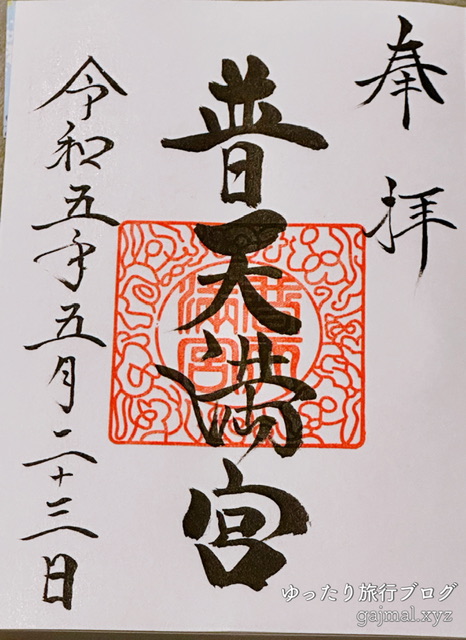 奉拝
普天満宮
令和五年五月二十三日
ゆったり旅行ブログ
gajmal.xyz